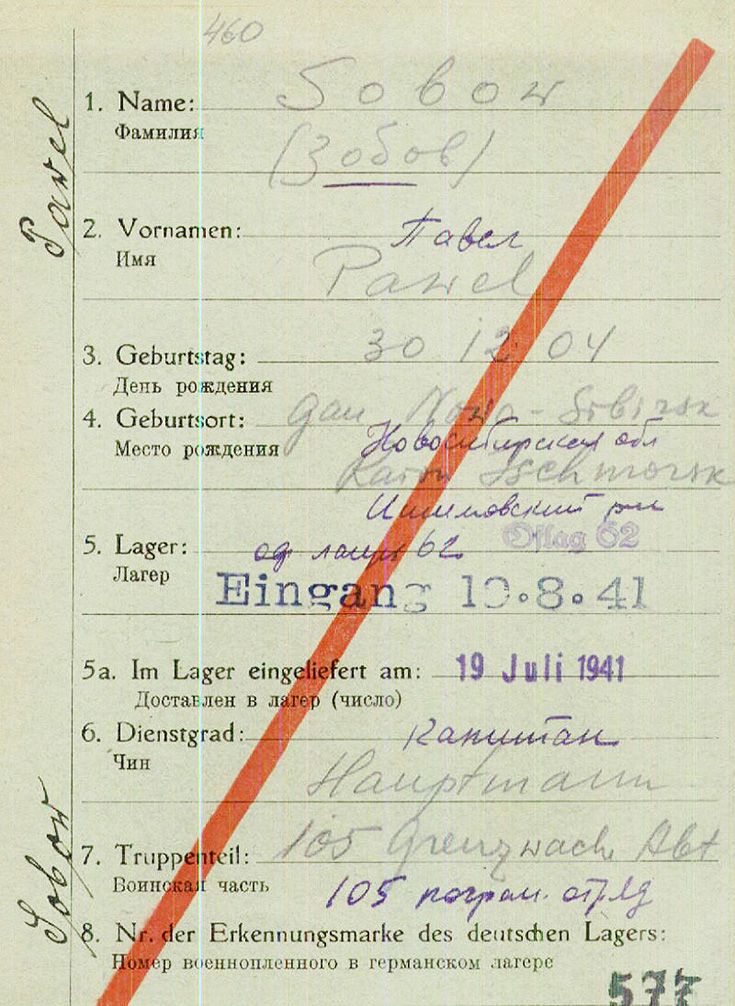 460
1. Name: Sobow
Фамилия (Зобов)
Pawel
2. Vornamen: Павел
Имя Pawel
3. Geburtstag: 30 12 04
День рождения
4. Geburtsort: Gau Nowo-Sibirsk
Место рождения Новосибирская обл
5. Lager: лагерь 62 Oflag 62
Лагер
Eingang 19.8.41
5a. Im Lager eingeliefert am: 19 Juli 1941
Доставлен в лагер (число)
6. Dienstgrad: капитан
Чин Hauptmann
Sobow
7. Truppenteil: 105 Grenzwach Abt
Воинская часть 105 погран. отряд
8. Nr. der Erkennungsmarke des deutschen Lagers:
Номер военнопленного в германском лагере
577